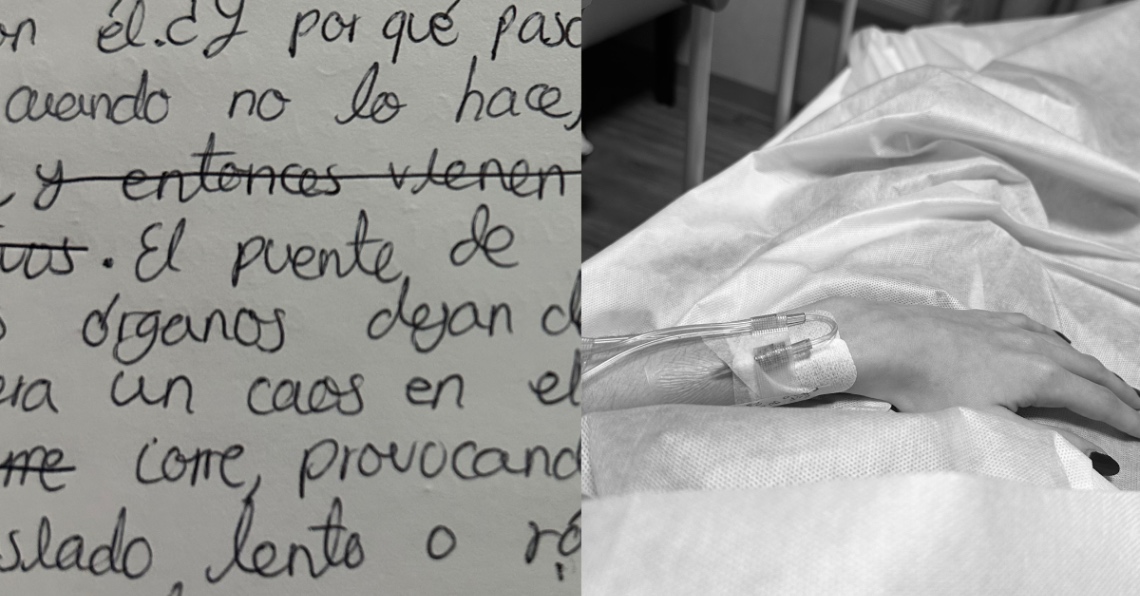 on él. ¿Y por qué pasa
cuando no lo hace,
, y entonces vienen
. El puente, de
órganos dejan d
era un caos en el
me corre, provocand
slado, lento o ró